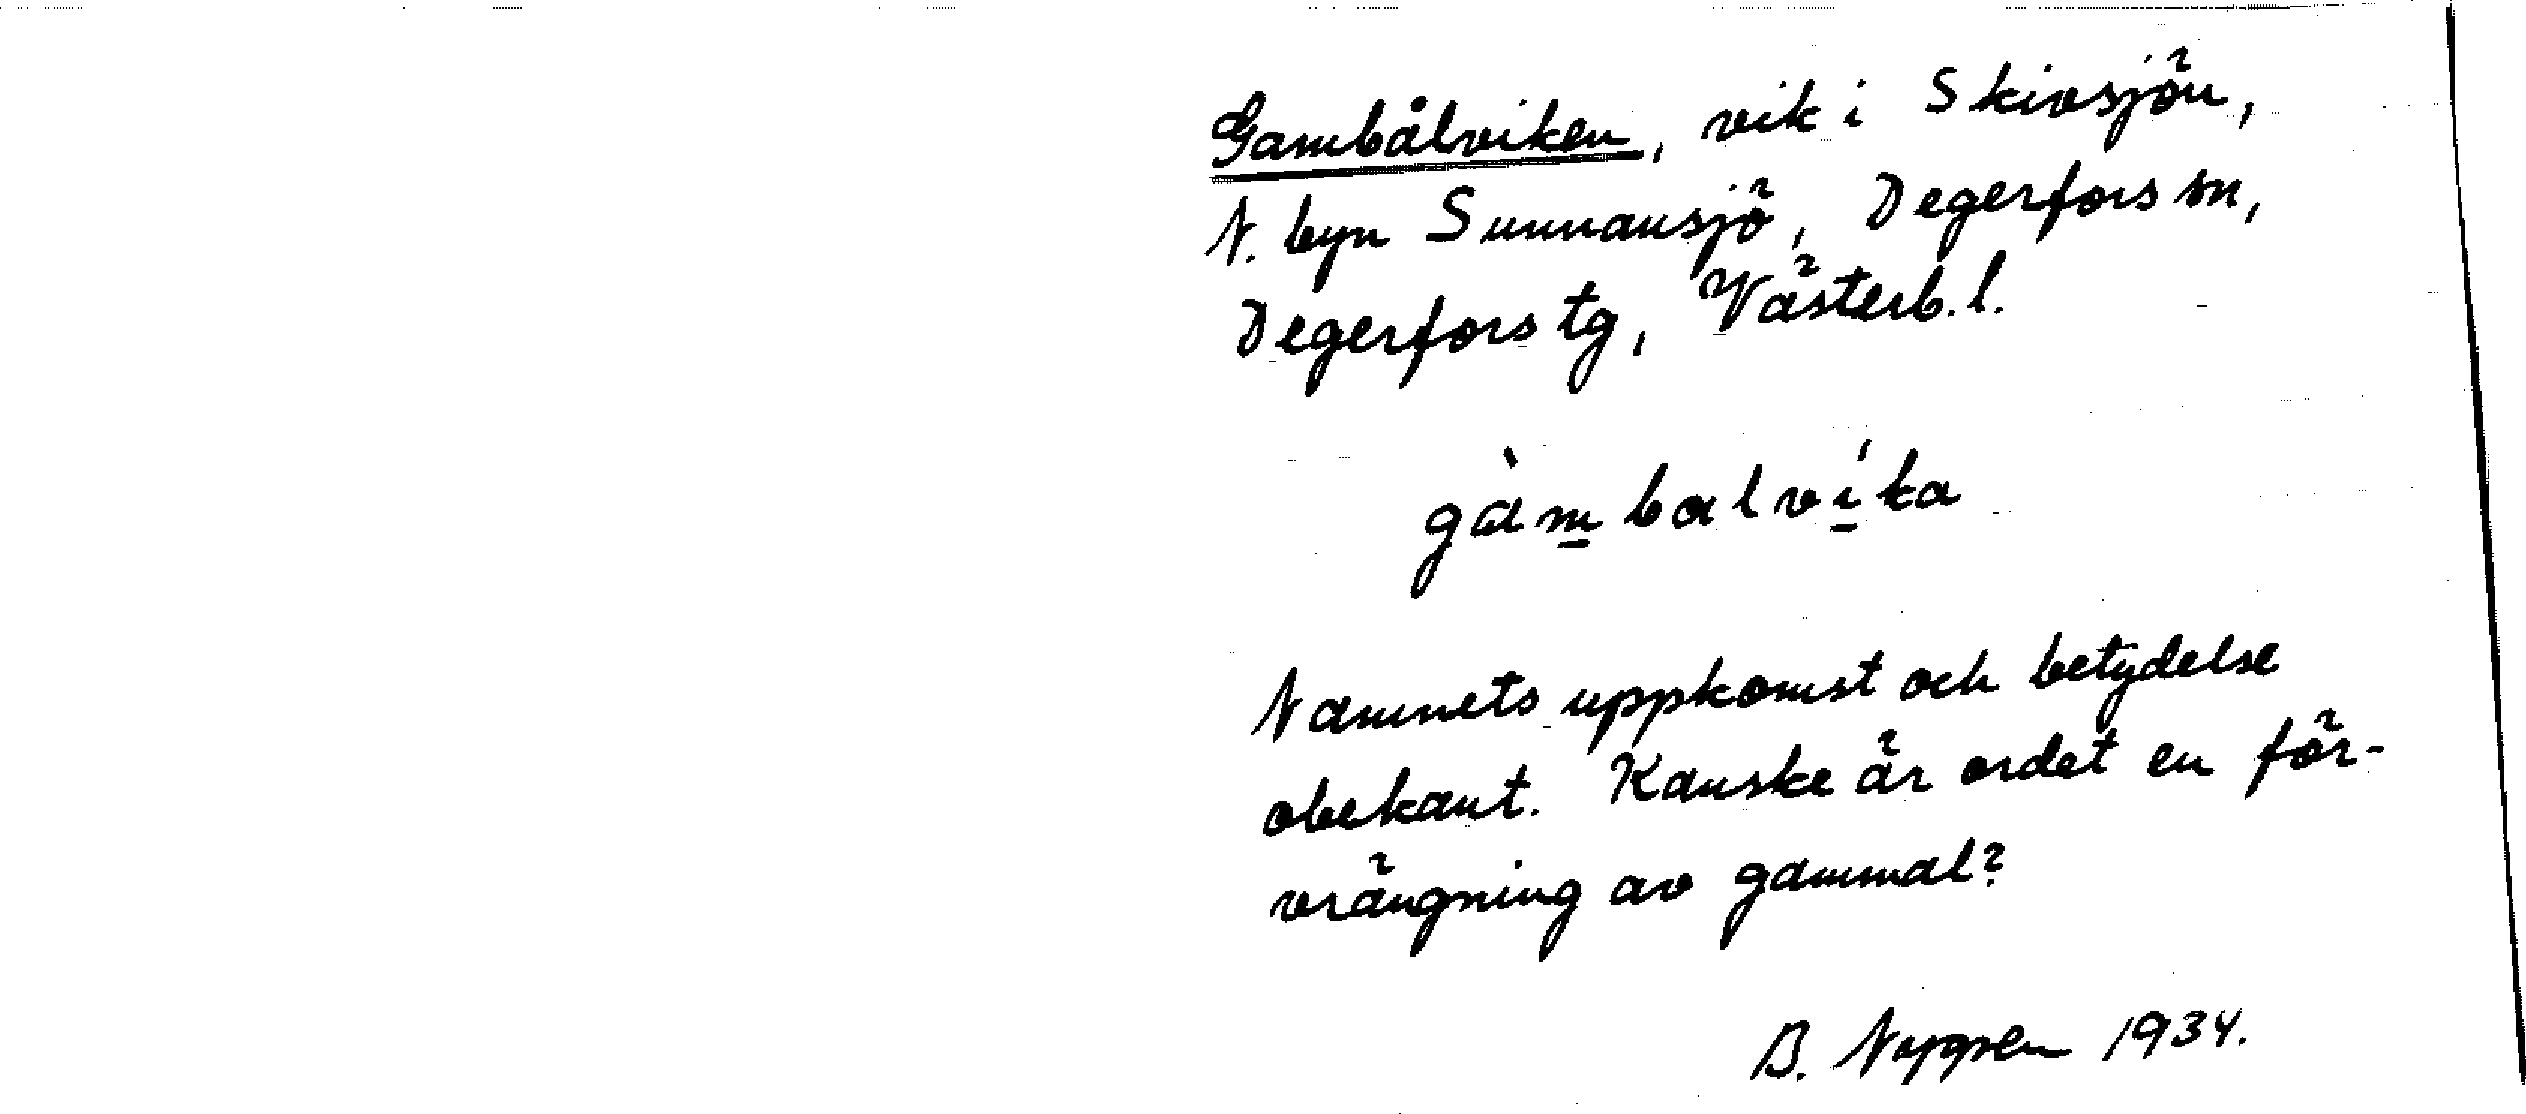 Gambålviken, vik i Skivsjön,
N. byn Sunnansjö, Degerfors sn,
Degerfors tg, Västerb. l.
gàmbalvíka
Namnets uppkomst och betydelse
obekant. Kanske är ordet en för-
vrängning av gammal?
B. 1934.